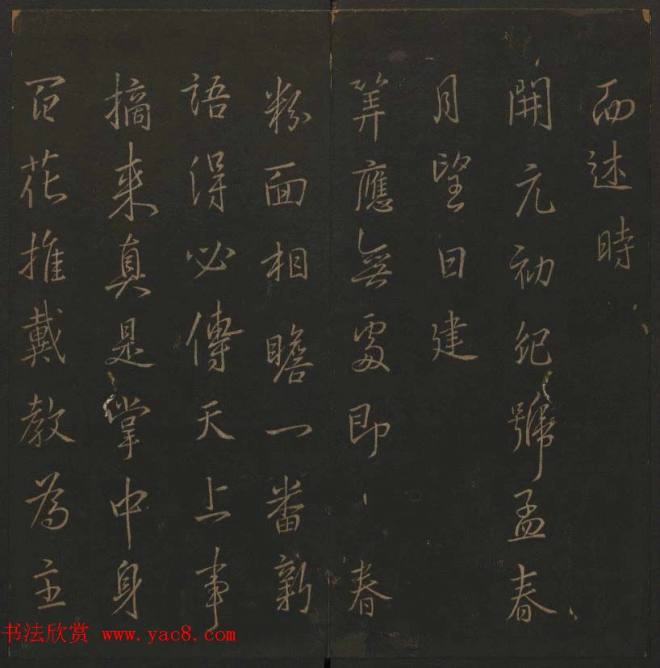 而述時
開元初紀號孟春
月望日建
筭應無處即丶春
粉面相瞻一番新
語得必傳天上事
摘來真是掌中身
百花推戴教為主
书法欣赏 www.yac8.com